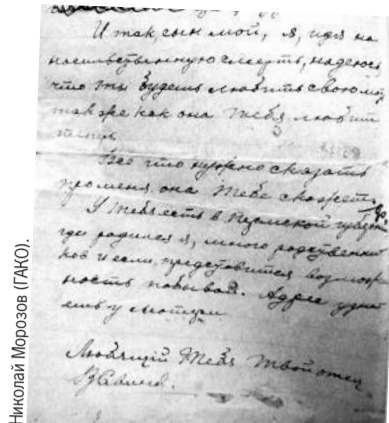 И так, сын мой, я, идя на
насильственную смерть, надеюсь
что ты будешь любить свою
так же как она тебя любит
теперь.
Все что нужно сказать
про меня, она тебе скажет.
У тебя есть в Пермской
где родился я, много родственни
ков и если представится возмож
ность побывай. Адрес узна
ешь у матери
Любящий Тебя Твой отец
Николай Морозов (ГАКО).